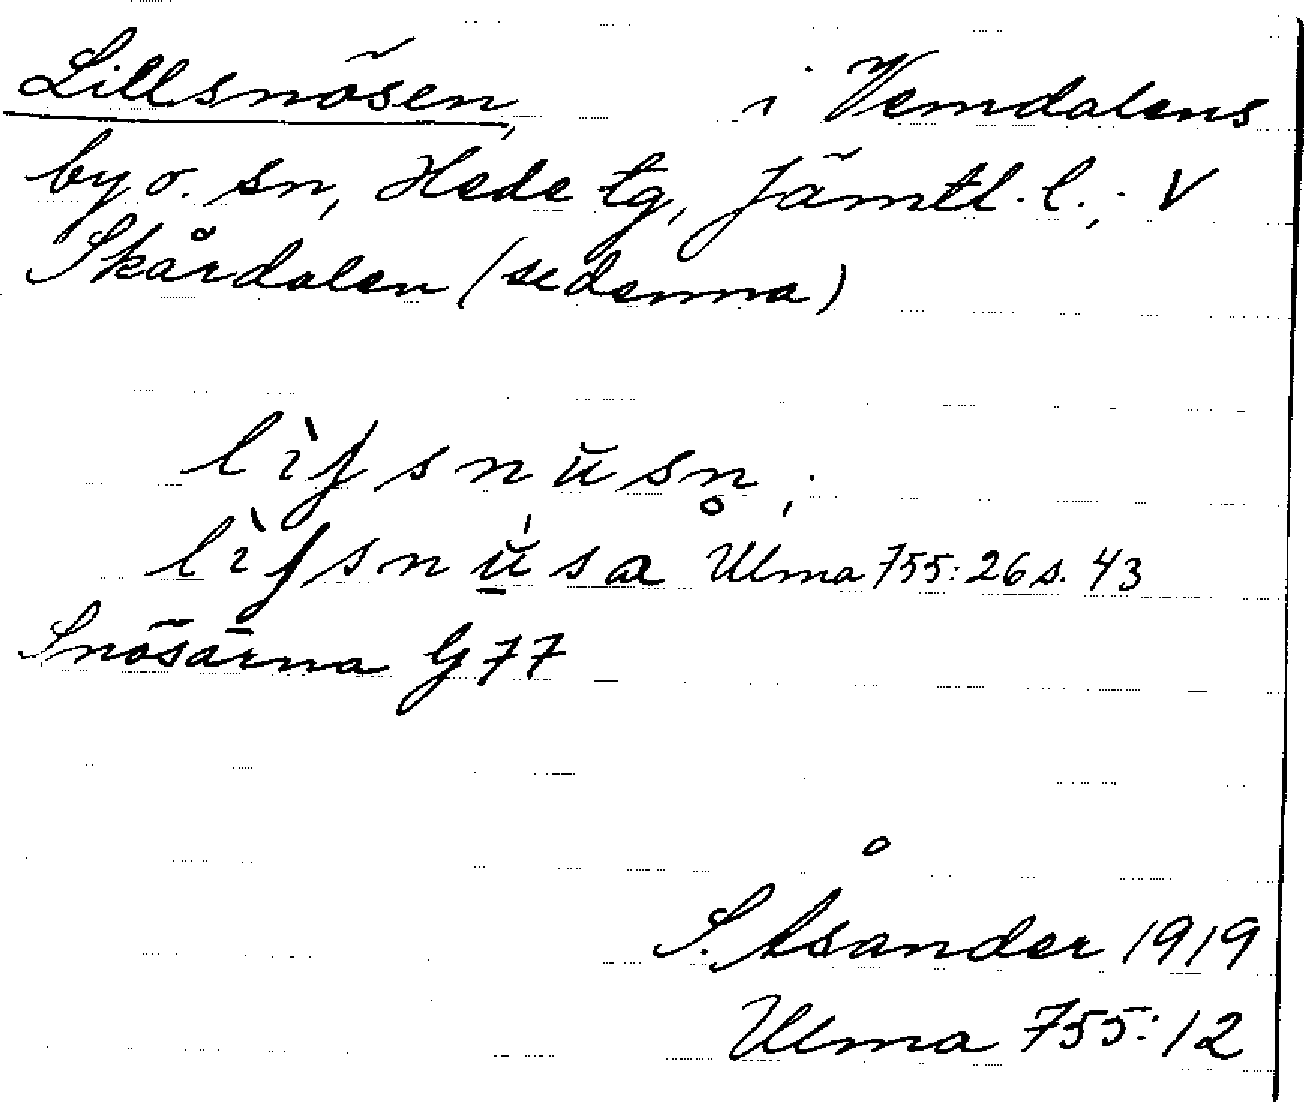 Lillsnösen, i Vemdalens
by o. sn, Hede tg, Jämtl. l.; V
Skårdalen (sedenna)
lìʃsnŭsn̥;
lìʃsnŭ́sa Ulma 755:26 s. 43
Snösarna G 77
S. Åsander 1919
Ulma 755:12